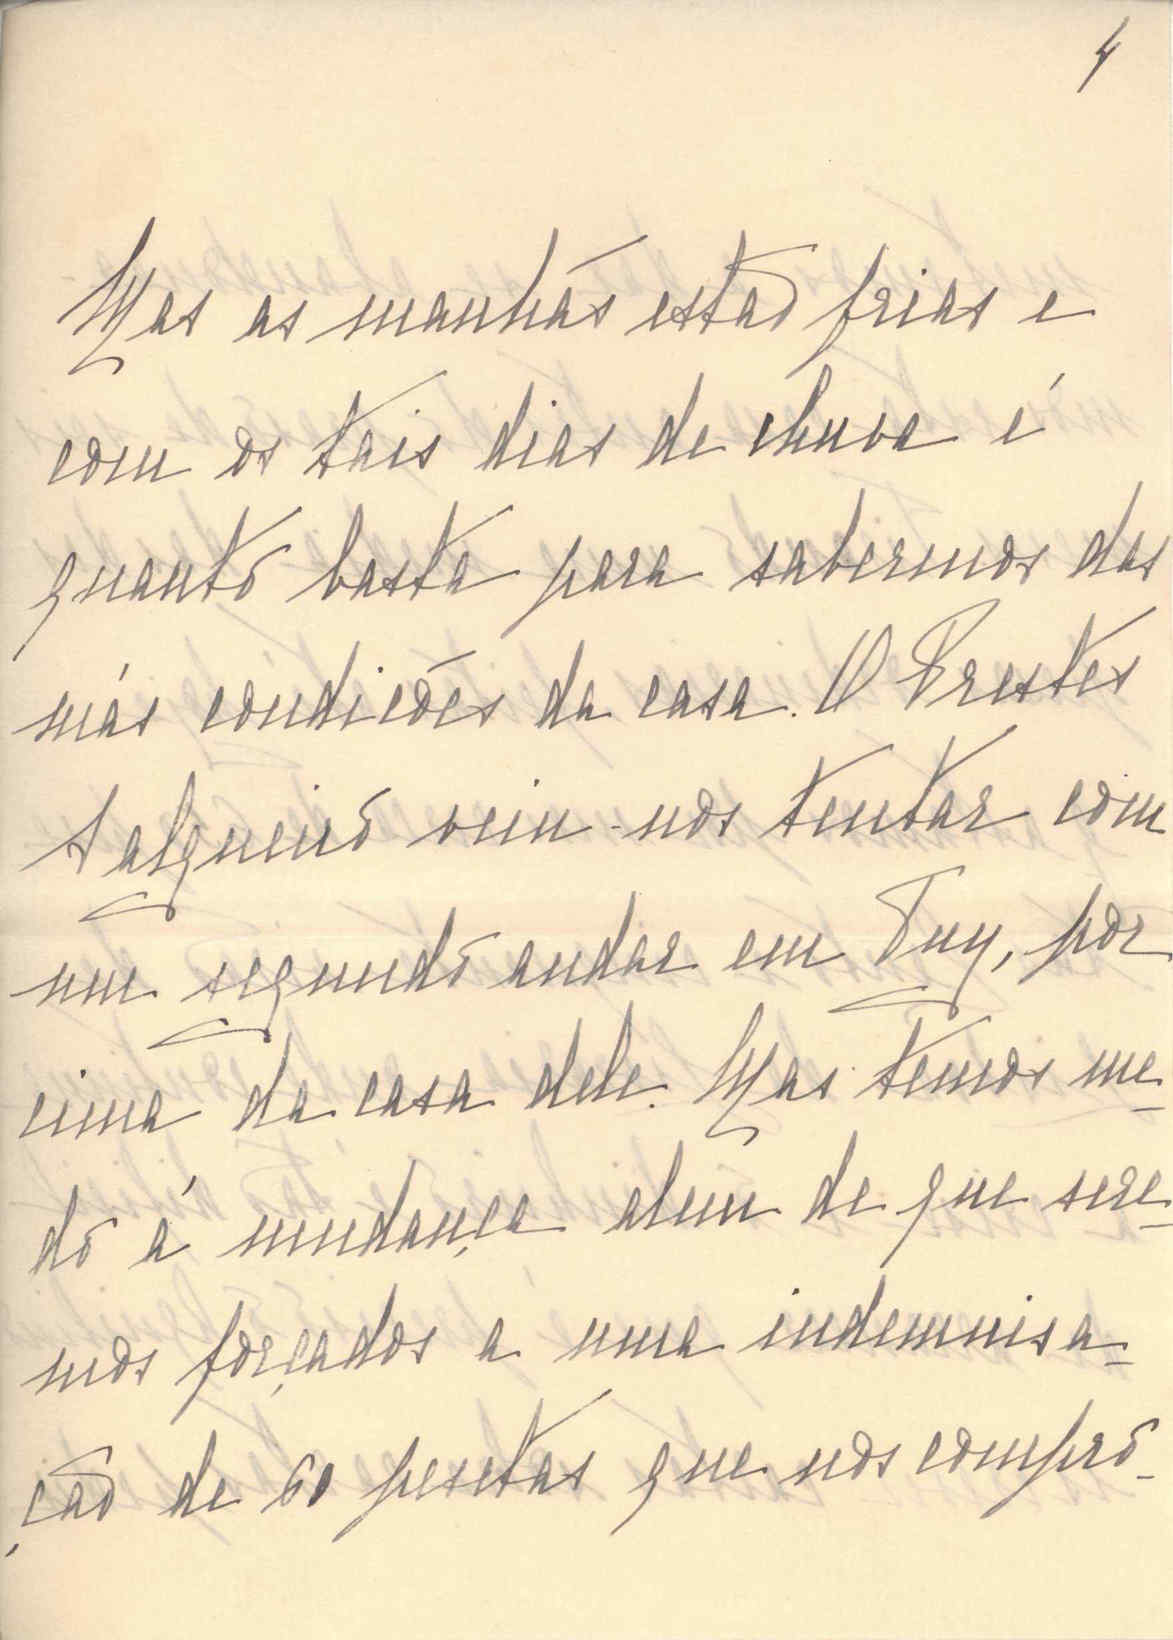 4
Mas as manhãs estão frias e
com os tais dias de chuva é
quanto basta para sabermos das
más condições da casa. O Prestes
Salgueiro vein-nos tentar com
um segundo andar em Tuy, por
cima da casa dele. Mas temos me-
do á mudança alem de que sere-
mos forçados a uma indemnisa-
ção de 60 pesetas que nos compro-